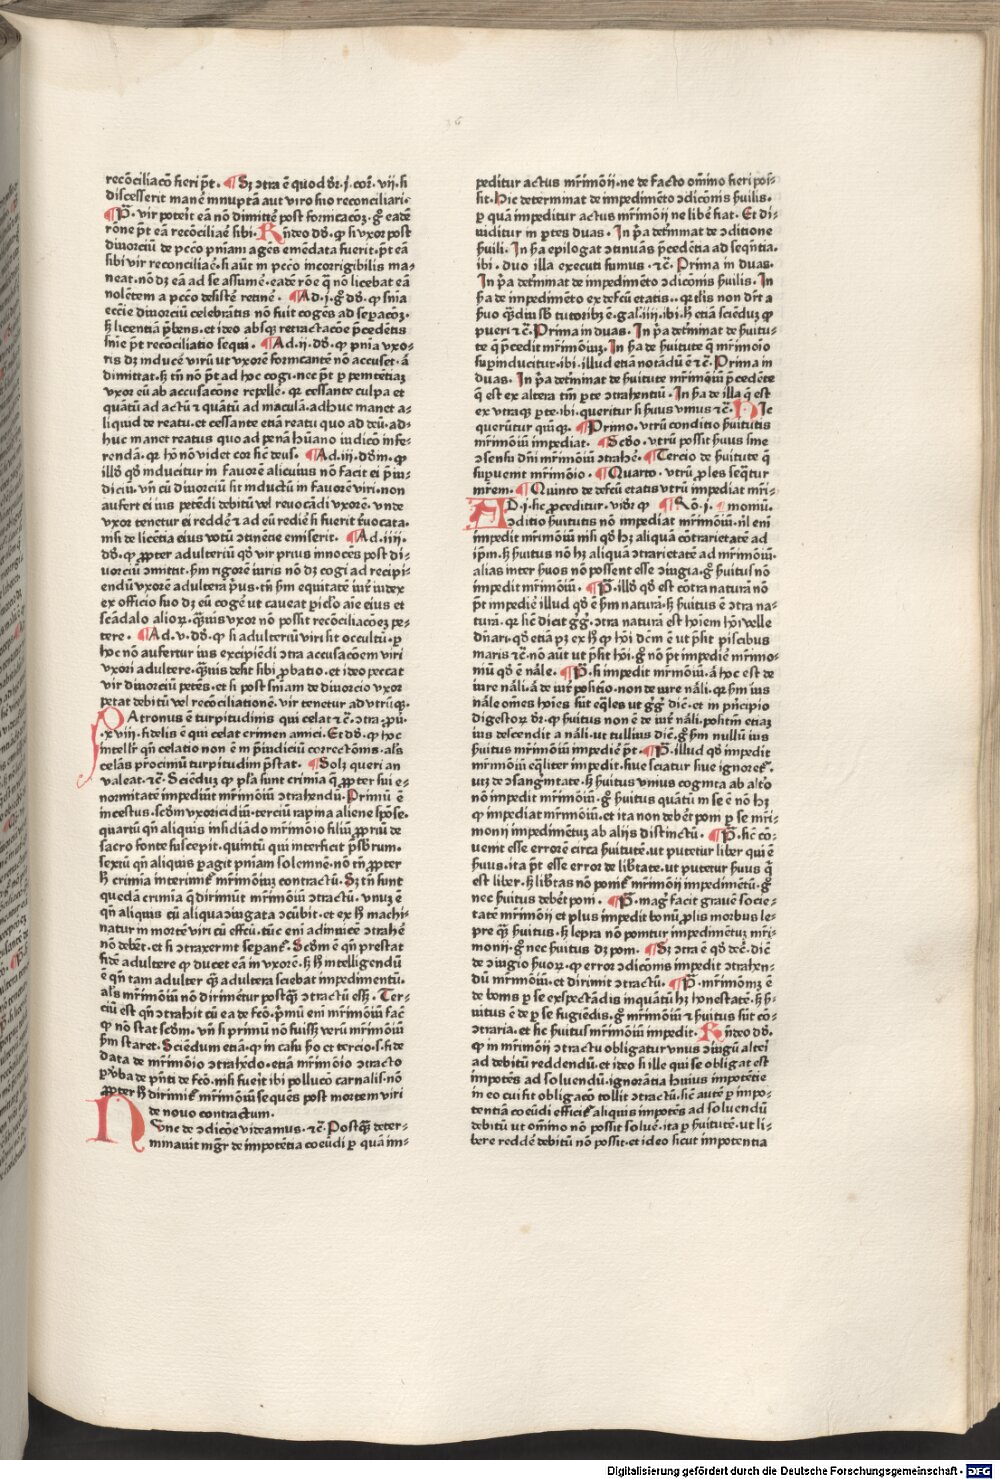 recõciliacõ fieri p̃t. ¶ Sꝫ ↄtra ẽ quod dr̃. j. cor̃. vij. si
discesserit manẽt innuptã aut viro suo reconciliari.
¶ P̃. vir poterit eã nõ dimittẽ post fornicacoꝫ. g̃ eadẽ
rõne p̃t eã recõciliaẽ sibi. Rñdeo ds̃. ꝙ si vxor post
diuorciũ de pcc̃o pñiam agẽs emẽdata fuerit. p̃t eã
sibi vir reconciliaẽ. si aũt in pcc̃o incorrigibilis ma-
neat. nõ dꝫ eã ad se assumẽ. eadẽ rõe q̃ nõ licebat eã
nolẽtem a pcc̃o desistẽ retinẽ. ¶ Ad. j. g̃ ds̃. ꝙ sñia
eccĩe diuorciũ celebrãtis nõ fuit cogẽs ad sepacõꝫ.
sꝫ licentiã p̃bens. et ideo absqꝫ retractacõe p̃cedẽtis
snĩe p̃t recõciliatio sequi. ¶ Ad. ij. ds̃. ꝙ pñia vxo-
ris dꝫ inducẽ virũ ut vxorẽ fornicantẽ nõ accuset. aut
dimittat. sꝫ tñ nõ p̃t ad hoc cogi. nec p̃t p penitẽtiaꝫ
vxor eũ ab accusacõne repellẽ. qꝛ cessante culpa et
quãtũ ad actũ ⁊ quãtũ ad maculã. adhuc manet a-
liquid de reatu. et cessante etiã reatu quo ad deũ. ad-
huc manet reatus quo ad penã hũano iudicio infe-
rendã. qꝛ hõ nõ videt cor sic̃ deus. ¶ Ad. iij. dsm̃. ꝙ
illḋ qḋ inducitur in fauorẽ alicuius nõ facit ei p̃iu-
diciũ. vñ cũ diuorciũ sit inductũ in fauorẽ viri. non
aufert ei ius petẽdi debitũ vel reuocãdi vxorẽ. vnde
vxor tenetur ei reddẽ ⁊ ad eũ redirẽ si fuerit reuocata.
nisi de licẽtia eius votũ ↄtinẽtie emiserit. ¶ Ad. iiij.
ds̃. ꝙ ꝓpter adulteriũ qḋ vir prius innocẽs post di-
uorciũ ↄmittat. sm̃ rigorẽ iuris nõ dꝫ cogi ad recipi-
endũ vxorẽ adulterã p̃us. tñ sm̃ equitatẽ iur̃ iudex
ex officio suo dꝫ eũ cogẽ ut caueat piclo aĩe eius et
scãdalo alioꝛ. q̃uis vxor nõ possit recõciliacõeꝫ pe-
tere. ¶ Ad. v. ds̃. ꝙ si adulteriũ viri sit occultũ. p
hoc nõ aufertur ius excipiẽdi ↄtra accusacõem viri
vxori adultere. q̃uis desit sibi ꝓbatio. et ideo peccat
vir diuorciũ petẽs. et si post sñiam de diuorcio vxor
petat debitũ vel recõciliationẽ. vir tenetur ad vtrũqꝫ.
PAtronus ẽ turpitudinis qui celat ⁊c̃. ↄtra. ꝓu.
.xviij. fidelis ẽ qui celat crimen amici. Et ds̃. ꝙ hoc
intelligr̃ qñ celatio non ẽ in p̃iudiciũ correctõnis. als̃
celãs proximũ turpitudim p̃stat. ¶ Solꝫ queri an
valeat. ⁊c̃. Sciẽduꝫ ꝙ pla sunt crimina q̃ ꝓpter sui e-
normitatẽ impediũt mr̃imõiũ ↄtrahendũ. Primũ ẽ
incestus. scdm̃ vxoricidiũ. terciũ rapina aliene spõse.
quartũ qñ aliquis insidiãdo mr̃imõio filiũ ꝓpriũ de
sacro fonte suscepit. quintũ qui interficit p̃sbr̃um.
sextũ qñ aliquis pagit pñiam solemnẽ. nõ tñ ꝓpter
hꝫ crimina interimit̃ mr̃imõiuꝫ contractũ. Sꝫ tñ sunt
quedã crimina q̃ dirimũt mr̃imõiũ ↄtractũ. vnuꝫ ẽ
qñ aliquis cũ aliqua ↄiugata ↄcũbit. et ex hꝫ machi-
natur in mortẽ viri cũ effcũ. tũc eni adinuicẽ ↄtrahẽ
nõ debẽt. et si ↄtraxerint sepant̃. Scdm̃ ẽ qñ prestat
fidẽ adultere ꝙ ducet eã in vxorẽ. sꝫ hꝫ intelligendũ
ẽ qñ tam adulter q̃ adultera sciebat impedimentũ.
als̃ mr̃imõiũ nõ dirimẽtur postq̃ ↄtractũ esset. Ter-
ciũ est qñ ↄtrahit cũ ea de fcõ. p̃mũ eni mr̃imõiũ fac̃
ꝙ nõ stat scdm̃. vñ si primũ nõ fuisset verũ mr̃imõiũ
scdm̃ staret. Sciẽdum etiã. ꝙ in casu scdo et tercio. s. fide
data de mr̃imõio ↄtrahẽdo. etiã mr̃imõio ↄtracto
p vba de pñti de fcõ. nisi fuerit ibi pollucõ carnalis. nõ
ꝓpter hꝫ dirimit̃ mr̃imõiũ seques post mortem viri
de nouo contractum.
NUnc de ↄdicõe videamus. ⁊c̃. Postq̃ deter-
minauit mgr̃ de impotẽtia coeũdi p quã im-
peditur actus mr̃imõij. ne de facto om̃ino fieri pos-
sit. Hic determinat de impedimẽto ↄdicõnis s̃uilis.
p quã impeditur actus mr̃imõij ne libẽ fiat. Et di-
uiditur in ptes duas. In p̃a detm̃inat de ↄditione
s̃uili. In s̃a epilogat ↄtinuãs p̃cedẽtia ad seqñtia.
ibi. duo illa executi sumus. ⁊c̃. Prima in duas.
In p̃a detm̃inat de impedimẽto ↄdicõnis s̃uilis. In
s̃a de impedimẽto ex defcũ etatis. qꝛ tl̃is non dr̃t a
s̃uo q̃diu sb̃ tutoribꝫ ẽ. gal. iiij. ibi. sꝫ etiã sciẽduꝫ ꝙ
pueri ⁊c̃. Prima in duas. In p̃a detm̃inat de s̃uitu-
te q̃ p̃cedit mr̃imõiuꝫ. In s̃a de s̃uitute q̃ mr̃imõio
supinducitur. ibi. illud etiã notãdũ ẽ ⁊c̃. Prima in
duas. In p̃a detm̃inat de s̃uitute mr̃imõiũ p̃cedẽte
q̃ est ex altera tm̃ pte ↄtrahentiũ. In s̃a de illa q̃ est
ex vtraqꝫ pte. ibi. queritur si s̃uus vnius ⁊c̃. HIc
querũtur quinqꝫ. ¶ Primo. vtrũ conditio s̃uitutis
mr̃imõiũ impediat. ¶ Scdo. vtrũ possit s̃uus sine
ↄsensu dñi mr̃imõiũ ↄtrahẽ. ¶ Tercio de s̃uitute q̃
supuenit mr̃imõio. ¶ Quarto. vtrũ ꝓles seq̃tur
mr̃em. ¶ Quinto de defcũ etatis vtrũ impediat mr̃i-
AD. j. sic ꝓceditur. vidr̃ ꝙ ¶ Rõ. j. ¶ moniũ.
ↄditio s̃uitutis nõ impediat mr̃imõiũ. nl̃ eni
impedit mr̃imõiũ nisi qḋ hꝫ aliquã cõtrarietatẽ ad
ip̃m. sꝫ s̃uitus nõ hꝫ aliquã ↄtrarietatẽ ad mr̃imõiũ.
alias inter s̃uos nõ possent esse ↄiugia. g̃ s̃uitus nõ
impedit mr̃imõiũ. ¶ P̃. illḋ qḋ est cõtra naturã nõ
p̃t impediẽ illud qḋ ẽ sm̃ naturã. sꝫ s̃uitus ẽ ↄtra na-
turã. qꝛ sic̃ dicit gg̃. ↄtra naturã est hoiem hoi velle
dñari. qḋ etiã pꝫ ex hꝫ ꝙ hoi dc̃m ẽ ut p̃sit piscibus
maris ⁊c̃. nõ aũt ut p̃sit hoi. g̃ nõ p̃t impediẽ mr̃imo-
niũ qḋ ẽ nãle. ¶ P̃. si impedit mr̃imõiũ. aut hoc est de
iure nãli. aut de iur̃ positio. non de iure nãli. qꝛ sm̃ ius
nãle om̃es hoĩes sũt eq̃les ut gg̃ dicit. et in prĩcipio
digestoꝛ dr̃. ꝙ s̃uitus non ẽ de iur̃ nãli. positm̃ etiaꝫ
ius descendit a nãli. ut tullius dic̃. g̃ sm̃ nullũ ius
s̃uitus mr̃imõiũ impediẽ p̃t. ¶ P̃. illud qḋ impedit
mr̃imõiũ eq̃liter impedit. siue sciatur siue ignoret̃.
utꝫ de ↄsanguinitate. sꝫ s̃uitus vnius cognita ab alto
nõ impedit mr̃imõiũ. g̃ s̃uitus quãtũ in se ẽ nõ hꝫ
ꝙ impediat mr̃imõiũ. et ita non debẽt poni p se mr̃i-
monij impedimẽtuꝫ ab alijs distinctũ. ¶ P̃. sic̃ cõ-
uenit esse errorẽ circa s̃uitutẽ. ut putetur liber qui ẽ
s̃uus. ita p̃t esse error de lib̃tate. ut putetur s̃uus q̃
est liber. sꝫ lib̃tas nõ ponit̃ mr̃imõij impedimẽtũ. g̃
nec s̃uitus debẽt poni. ¶ P̃. mag̃ facit grauẽ socie-
tatẽ mr̃imõij et plus impedit bonũ ꝓlis morbus le-
pre q̃ s̃uitus. sꝫ lepra nõ ponitur impedimẽtuꝫ mr̃i-
monij. g̃ nec s̃uitus dꝫ poni. ¶ Sꝫ ↄtra ẽ qḋ dec̃. dic̃
de ↄiugio s̃uoꝛ. ꝙ error ↄdicõnis impedit ↄtrahen-
dũ mr̃imõiũ. et dirimit ↄtractũ. ¶ P̃. mr̃imõiuꝫ ẽ
de bonis p se exspectãdis inquãtũ hꝫ honestatẽ. sꝫ s̃-
uitus ẽ de p se fugiẽdis. g̃ mr̃imõiũ ⁊ s̃uitus sũt cõ-
ↄtraria. et sic s̃uitus mr̃imõiũ impedit. Rñdeo ds̃.
ꝙ in mr̃imõij ↄtractu obligatur vnus ↄiugũ alteri
ad debitũ reddendũ. et ideo si ille qui se obligat est
impotẽs ad soluendũ. ignorãtia huius impotẽtie
in eo cui fit obligacõ tollit ↄtractũ. sic̃ autẽ p impo-
tentiã coeũdi efficit̃ aliquis impotẽs ad soluendũ
debitũ ut om̃ino nõ possit soluẽ. ita p s̃uitutẽ. ut li-
bere reddẽ debitũ nõ possit. et ideo sicut impotentia
Digitalisierung gefördert durch die Deutsche Forschungsgemeinschaft - DFG